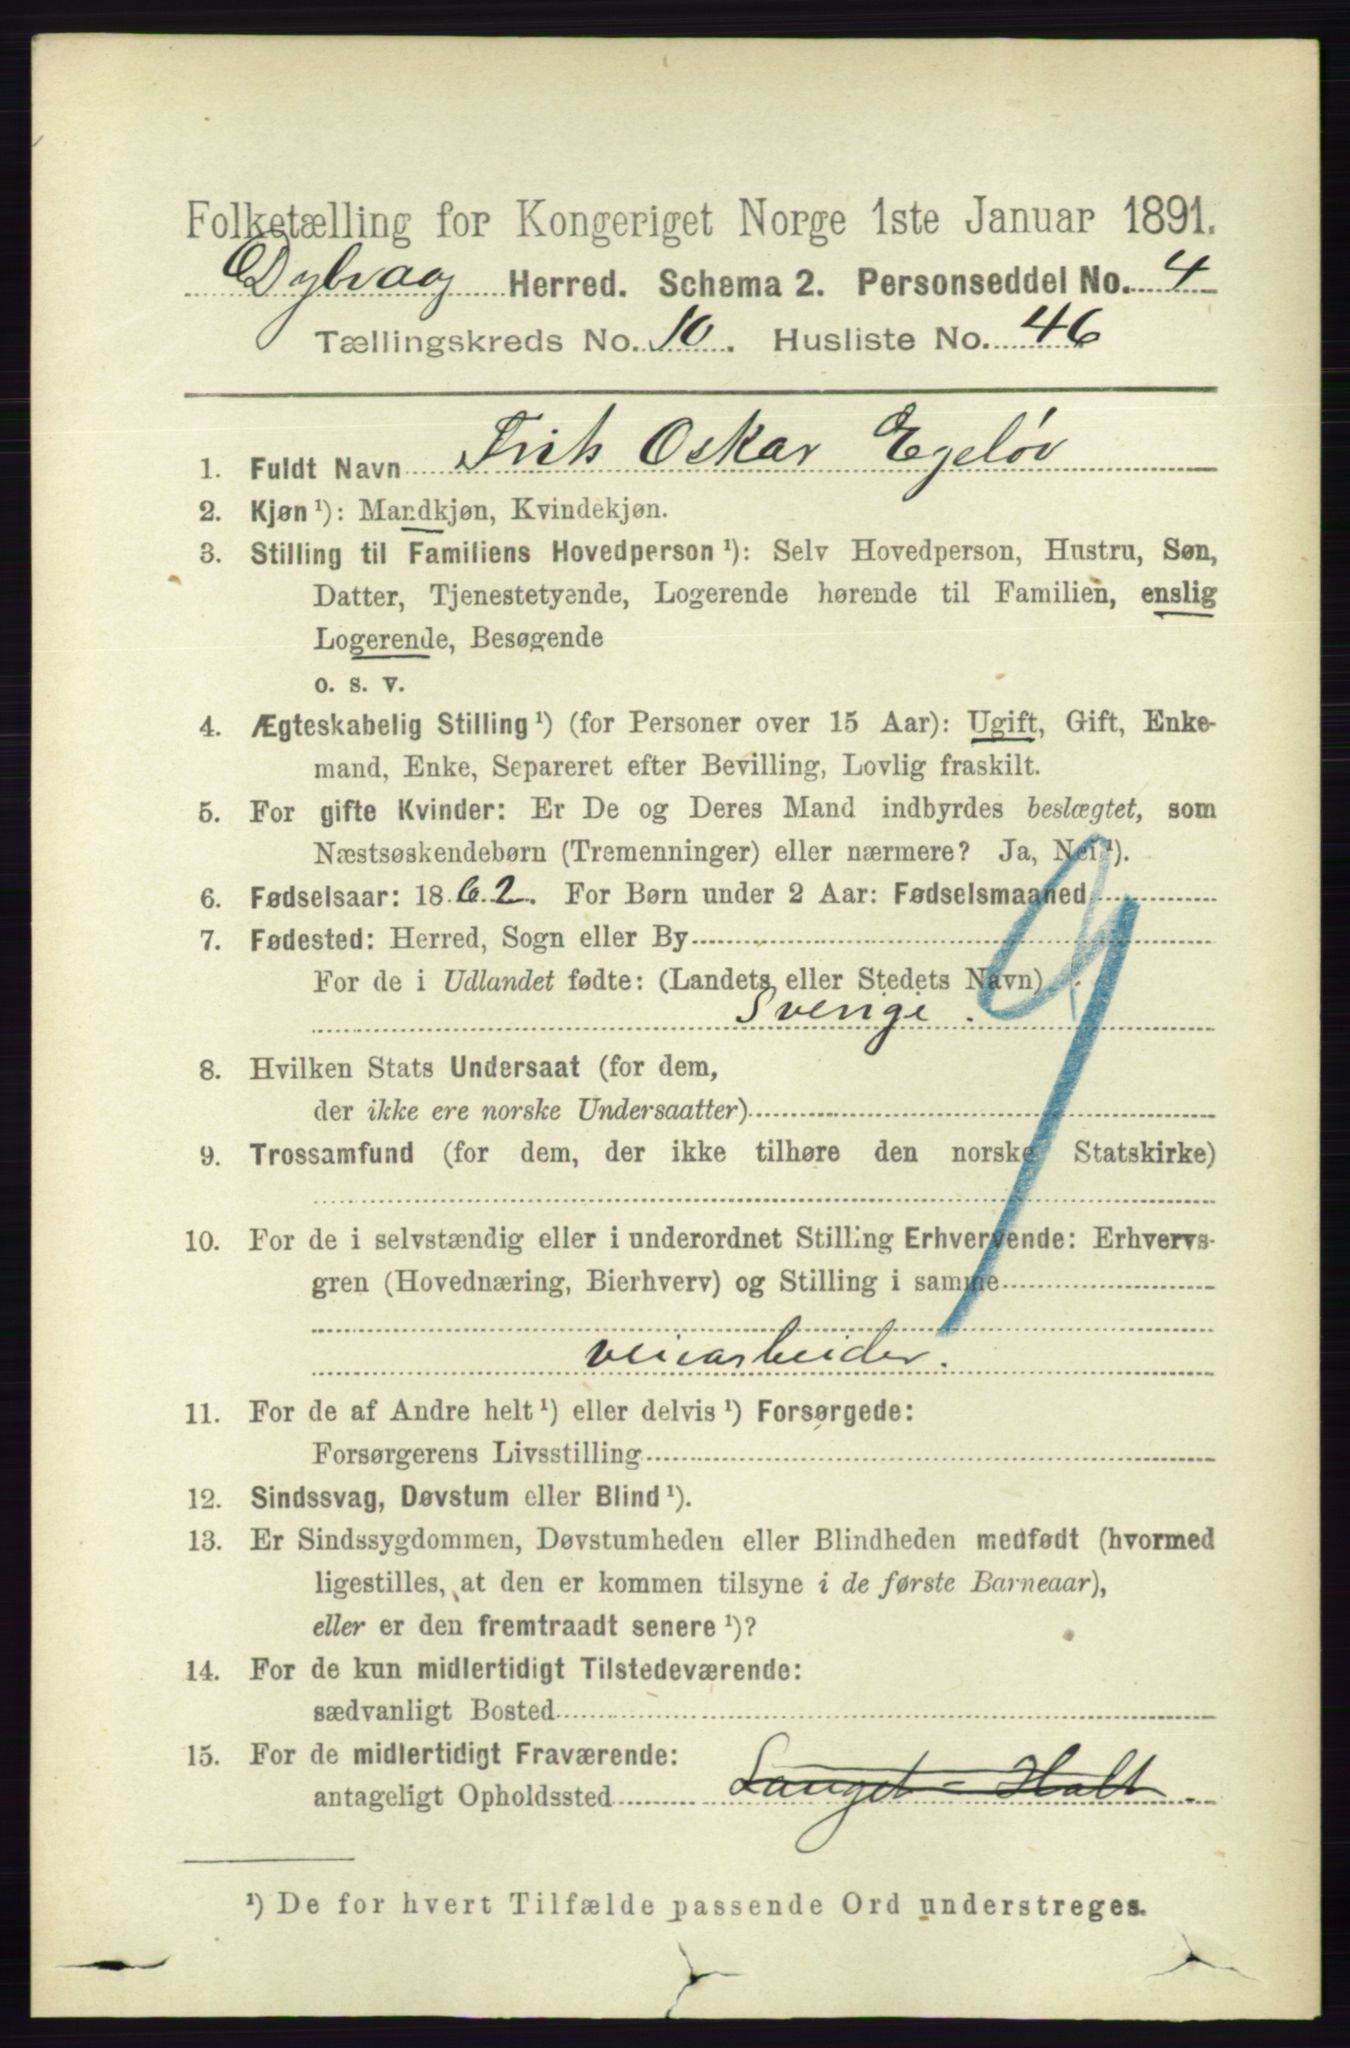 Folketælling for Kongeriget Norge 1ste Januar 1891.
Dybvaag Herred. Schema 2. Personseddel No. 4
Tællingskreds No. 10. Husliste No. 46
1. Fuldt Navn Frits Oskar Egeløv
2. Kjøn ¹): Mandkjøn, Kvindekjøn.
3. Stilling til Familiens Hovedperson ¹): Selv Hovedperson, Hustru, Søn,
Datter, Tjenestetyende, Logerende hørende til Familien, enslig
Logerende, Besøgende
o. s. v.
4. Ægteskabelig Stilling ¹) (for Personer over 15 Aar): Ugift, Gift, Enke-
mand, Enke, Separeret efter Bevilling, Lovlig fraskilt.
5. For gifte Kvinder: Er De og Deres Mand indbyrdes beslægtet, som
Næstsøskendebørn (Tremenninger) eller nærmere? Ja, Nei ¹).
6. Fødselsaar: 1862. For Børn under 2 Aar: Fødselsmaaned
7. Fødested: Herred, Sogn eller By
For de i Udlandet fødte: (Landets eller Stedets Navn)
Sverige.
8. Hvilken Stats Undersaat (for dem,
der ikke ere norske Undersaatter)
9. Trossamfund (for dem, der ikke tilhøre den norske Statskirke)
10. For de i selvstændig eller i underordnet Stilling Erhvervende: Erhvervs-
gren (Hovednæring, Bierhverv) og Stilling i samme
veiarbeider.
11. For de af Andre helt ¹) eller delvis ¹) Forsørgede:
Forsørgerens Livsstilling
12. Sindssvag, Døvstum eller Blind ¹).
13. Er Sindssygdommen, Døvstumheden eller Blindheden medfødt (hvormed
ligestilles, at den er kommen tilsyne i de første Barneaar),
eller er den fremtraadt senere ¹)?
14. For de kun midlertidigt Tilstedeværende:
sædvanligt Bosted
15. For de midlertidigt Fraværende:
antageligt Opholdssted Langet - Holt.
¹) De for hvert Tilfælde passende Ord understreges.
9